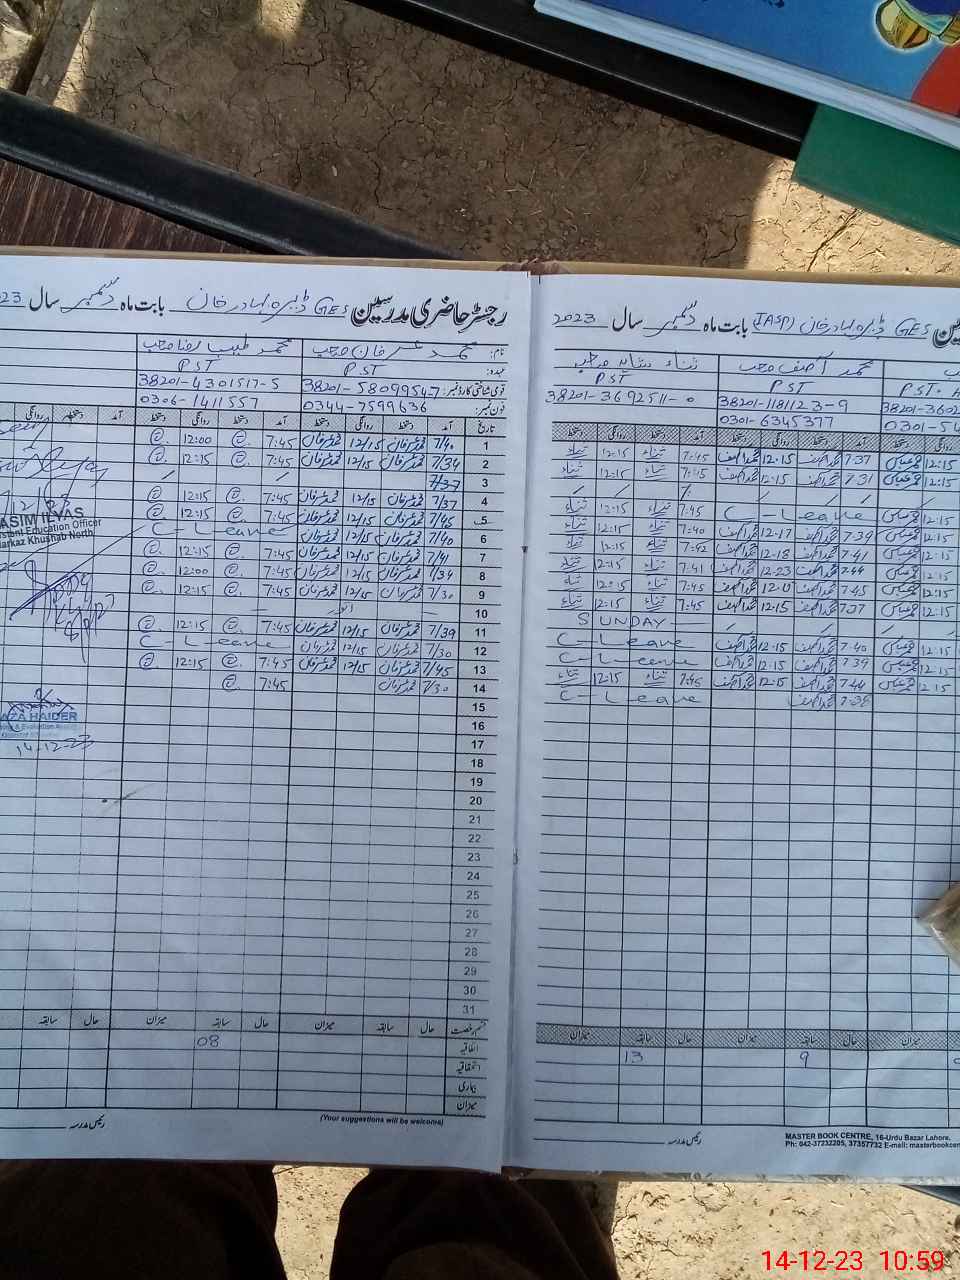 رجسٹر حاضری مدرسین GES ڈیرہ بہادر خان بابت ماہ دسمبر سال 2023
نام: محمد عرفان صاحب محمد طیب رضا صاحب
عہدہ: PST PST
قومی شناختی کارڈ نمبر: 38201-5809954-7 38201-4301517-5
فون نمبر: 0344-7599636 0306-1411557
تاریخ آمد دستخط روانگی دستخط آمد دستخط روانگی دستخط آمد دستخط روانگی
1 7/40 محمد عرفان 12/15 محمد عرفان 7:45 12:00
2 7/34 محمد عرفان 12/15 محمد عرفان 7:45 12:15
3 7/37
4 7/37 محمد عرفان 12/15 محمد عرفان 7:45 12:15
5 7/45 محمد عرفان 12/15 محمد عرفان 7:45 12:15
6 7/40 محمد عرفان 12/15 محمد عرفان C-Leave
7 7/41 محمد عرفان 12/15 محمد عرفان 7:45 12:15
8 7/34 محمد عرفان 12/15 محمد عرفان 7:45 12:00
9 7/30 محمد عرفان 12/15 محمد عرفان 7:45 12:15
10 — اتوار —
11 7/39 محمد عرفان 12/15 محمد عرفان 7:45 12:15
12 7/30 محمد عرفان 12/15 محمد عرفان C-Leave
13 7/45 محمد عرفان 12/15 محمد عرفان 7:45 12:15
14 7/30 محمد عرفان 7:45
15
16
17
18
19
20
21
22
23
24
25
26
27
28
29
30
31
ASIM ILYAS
stant Education Officer
arkaz Khushab North
AZA HAIDER
14-12-23
قسم رخصت حال سابقہ میزان حال سابقہ میزان حال سابقہ
اتفاقیہ 08
استحقاقیہ
بیماری
میزان
(Your suggestions will be welcome)
رئیس مدرسہ
GES ڈیرہ بہادر خان (IASP) بابت ماہ دسمبر سال 2023
محمد آصف صاحب ثناء
PST PST PST
38201-3602 38201-118112 3-9 38201-3692511-0
0301-54 0301-6345377
روانگی دستخط آمد دستخط روانگی دستخط آمد دستخط روانگی دستخط
12:15 7-37 محمد آصف 12-15 محمد آصف 7:45 ثناء 12:15 ثناء
12:15 7-31 محمد آصف 12:15 محمد آصف 7:45 ثناء 12:15 ثناء
12:15 C-Leave 7:45 ثناء 12:15 ثناء
12:15 7-39 محمد آصف 12-17 محمد آصف 7:40 ثناء 12:15 ثناء
12:15 7-41 محمد آصف 12-18 محمد آصف 7:42 ثناء 12:15 ثناء
12:15 7-44 محمد آصف 12-23 محمد آصف 7:41 ثناء 12:15 ثناء
12:15 7-45 محمد آصف محمد آصف 7:45 ثناء 12:15 ثناء
12:15 7-37 محمد آصف 12-15 محمد آصف 7:45 ثناء 12:15 ثناء
SUNDAY
12:15 7-40 محمد آصف 12-15 محمد آصف C-Leave
12:15 7-39 محمد آصف 12-15 محمد آصف C-Leave
12:15 7-44 محمد آصف 12:15 محمد آصف 7:45 ثناء 12:15 ثناء
7-38 محمد آصف C-Leave
میزان حال سابقہ میزان حال سابقہ میزان
9 13
رئیس مدرسہ
MASTER BOOK CENTRE, 16-Urdu Bazar Lahore.
Ph: 042-37232205, 37357732 E-mail: masterbookcen
14-12-23 10:59